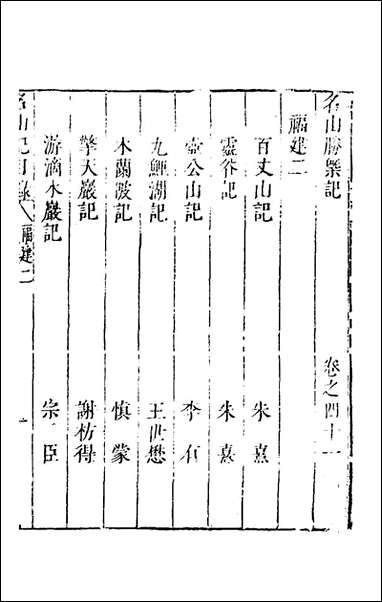 名山勝槩記 卷之四十一
福建二
百丈山記 朱熹
靈谷記 朱熹
壺公山記 李
九鯉湖記 王世懋
木蘭陂記 慎蒙
擎天巖記 謝枋得
游滴水巖記 宗臣
名山記目錄 福建二 一